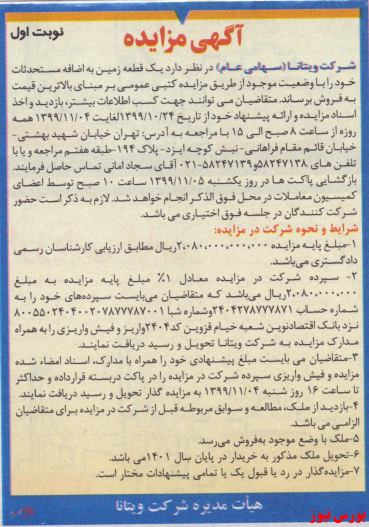 نوبت اول
آگهی مزایده
شرکت ویتانا (سهامی عام) در نظر دارد یک قطعه زمین به اضافه مستحدثات
خود را با وضعیت موجود از طریق مزایده کتبی عمومی بر مبنای بالاترین قیمت
به فروش برساند. متقاضیان می توانند جهت کسب اطلاعات بیشتر، بازدید و اخذ
اسناد مزایده و ارائه پیشنهاد خود از تاریخ ۱۳۹۹/۱۰/۲۴ لغایت ۱۳۹۹/۱۱/۰۴ همه
روزه از ساعت ۸ صبح الی ۱۵ با مراجعه به آدرس: تهران خیابان شهید بهشتی-
خیابان قائم مقام فراهانی- نبش کوچه ایزد- پلاک ۱۹۴ -طبقه هفتم مراجعه و یا با
تلفن های ۵۸۲۴۷۱۳۸و۵۸۲۴۷۱۳۹-۰۲۱ آقای سجاد امانی تماس حاصل فرمایند.
بازگشایی پاکات ها در روز یکشنبه ۱۳۹۹/۱۱/۰۵ ساعت ۱۰ صبح توسط اعضای
کمیسیون معاملات در محل فوق الذکر انجام خواهد شد. لازم به ذکر است حضور
شرکت کنندگان در جلسه فوق اختیاری می باشد.
شرایط و نحوه شرکت در مزایده:
۱-مبلغ پایه مزایده ۲،۰۸۰،۰۰۰،۰۰۰،۰۰۰ریال مطابق ارزیابی کارشناسان رسمی
دادگستری می‌باشد.
۲- سپرده شرکت در مزایده معادل ۱٪ مبلغ پایه مزایده به مبلغ
۲۰،۸۰۰،۰۰۰،۰۰۰ریال می‌باشد که متقاضیان می‌بایست سپرده‌های خود را به
شماره حساب ۲۴۰۴۲۷۸۷۷۷۸۷۱ وشماره شبا
نزد بانک اقتصادنوین شعبه خیام قزوین کد۲۴۰۴واریز و فیش واریزی را به همراه
مدارک مزایده به شرکت ویتانا تحویل و رسید دریافت نمایند.
۳-متقاضیان می بایست مبلغ پیشنهادی خود را همراه با مدارک، اسناد امضاء شده
مزایده و فیش واریزی سپرده شرکت در مزایده را در پاکت دربسته قرارداده و حداکثر
تا ساعت ۱۶ روز شنبه ۱۳۹۹/۱۱/۰۴ به مزایده گذار تحویل و رسید دریافت نمایند.
۴-بازدید از ملک، مطالعه و سوابق مربوطه قبل از شرکت در مزایده برای متقاضیان
الزامی می باشد.
۵-ملک با وضع موجود به‌فروش می‌رسد.
۶-تحویل ملک مذکور به خریدار در پایان سال ۱۴۰۱می باشد.
۷-مزایده‌گذار در رد یا قبول یک یا تمامی پیشنهادات مختار است.
هیأت مدیره شرکت ویتانا
بورس نیوز